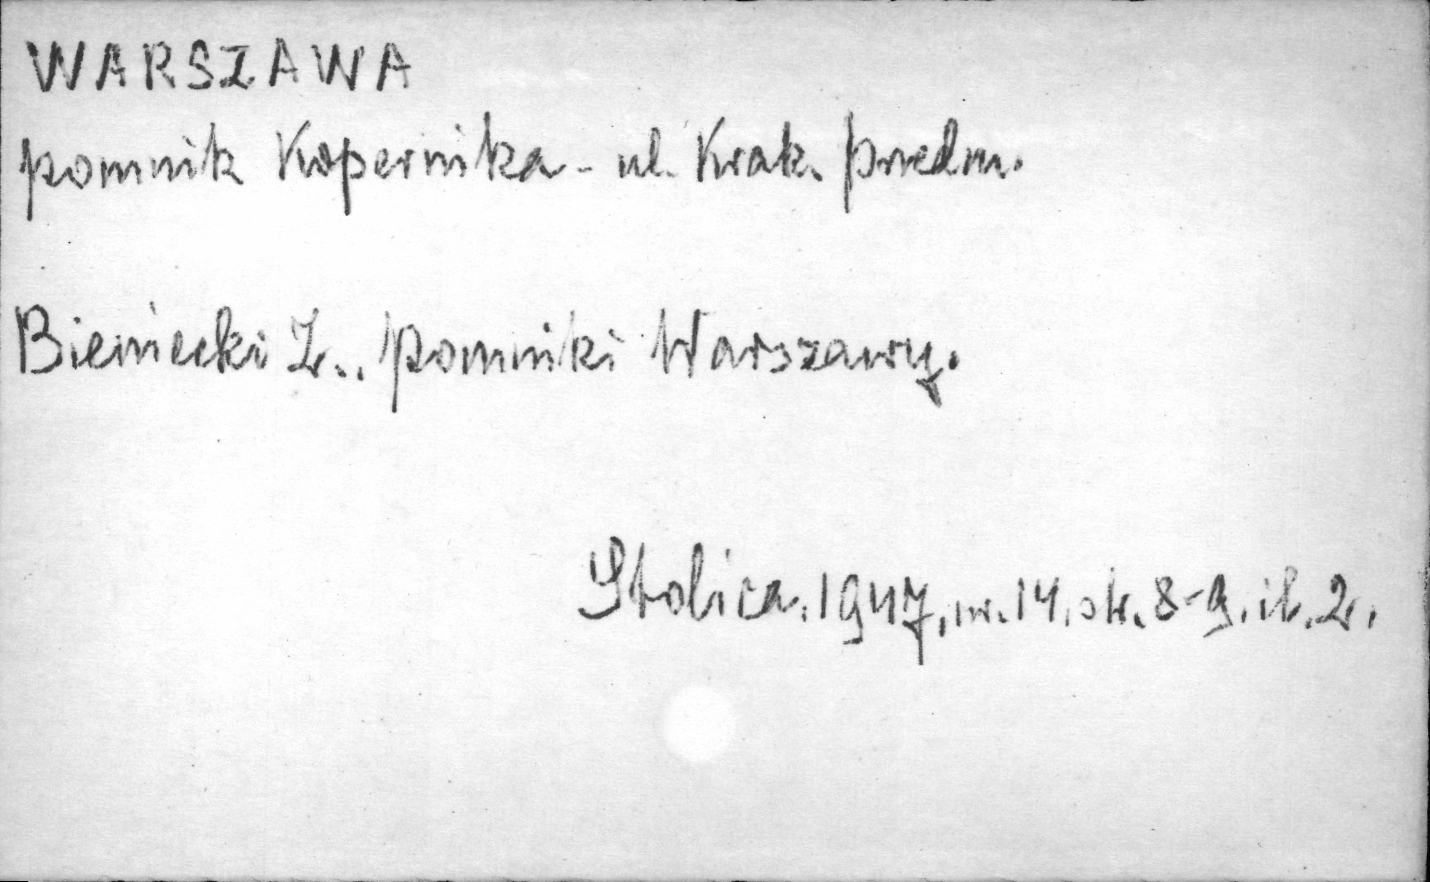 WARSZAWA
pomnik Kopernika - ul. Krak. Przedm.
Bieniecki Z., Pomniki Warszawy.
Stolica, 1947, nr. 14, str. 8-9, il. 2.